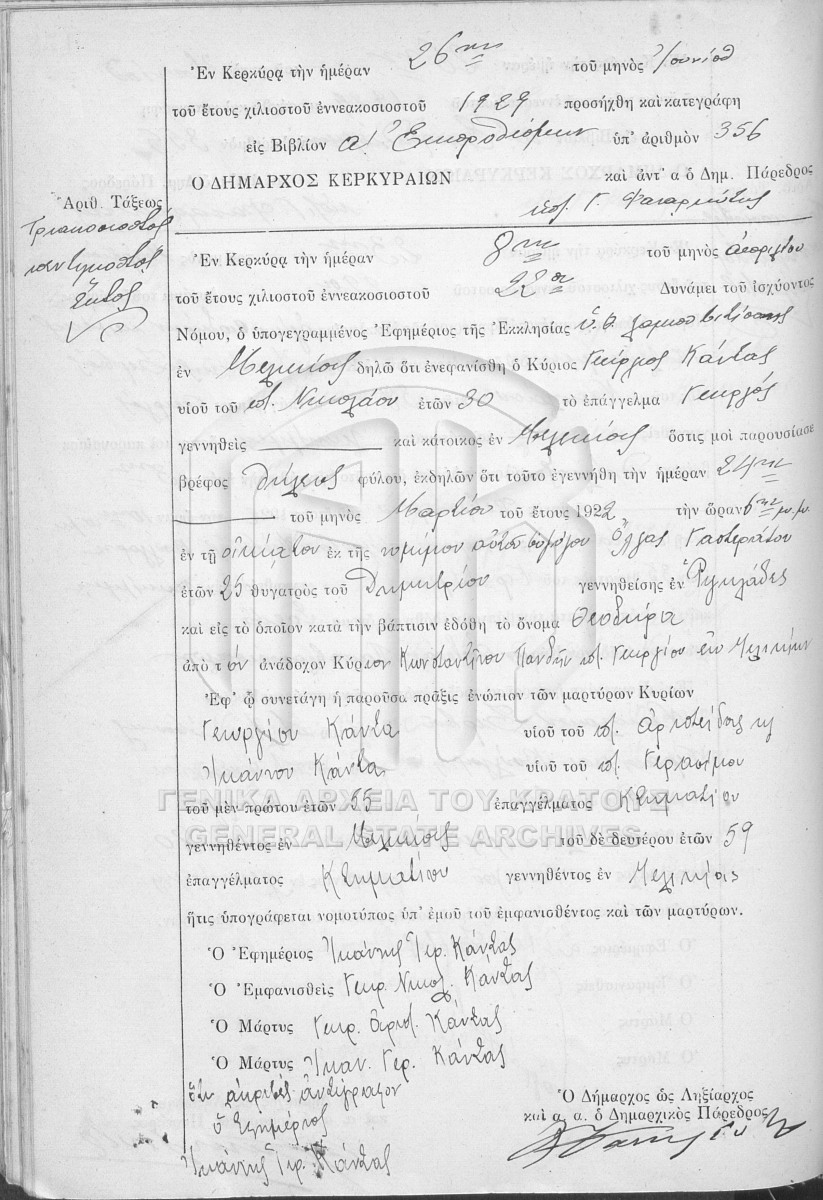 Ἐν Κερκύρᾳ τὴν ἡμέραν 26ην τοῦ μηνὸς Ἰουνίου
τοῦ ἔτους χιλιοστοῦ ἐννεακοσιοστοῦ 1929 προσήχθη καὶ κατεγράφη
εἰς Βιβλίον α' Ἐκπροθέσμων ὑπ' ἀριθμὸν 356
Ο ΔΗΜΑΡΧΟΣ ΚΕΡΚΥΡΑΙΩΝ καὶ ἀντ' α ὁ Δημ. Πάρεδρος
Ἀριθ. Τάξεως
Τριακοσιοστὸς
πεντηκοστὸς
ἕκτος
Ἐν Κερκύρᾳ τὴν ἡμέραν 8ην τοῦ μηνὸς Ἀπριλίου
τοῦ ἔτους χιλιοστοῦ ἐννεακοσιοστοῦ 22ου Δυνάμει τοῦ ἰσχύοντος
Νόμου, ὁ ὑπογεγραμμένος Ἐφημέριος τῆς Ἐκκλησίας Ὑ. Θ.
ἐν Μελικίας δηλῶ ὅτι ἐνεφανίσθη ὁ Κύριος Γεώργιος Κάντας
υἱοῦ τοῦ ποτ. Νικολάου ἐτῶν 30 τὸ ἐπάγγελμα Γεωργός
γεννηθεὶς καὶ κάτοικος ἐν Μελικίας ὅστις μοὶ παρουσίασε
βρέφος θήλεος φύλου, ἐκδηλῶν ὅτι τοῦτο ἐγεννήθη τὴν ἡμέραν 24ην
τοῦ μηνὸς Μαρτίου τοῦ ἔτους 1922 τὴν ὥραν 6ην μ.μ.
ἐν τῇ οἰκίᾳ του ἐκ τῆς νομίμου αὐτοῦ συζύγου Ὄλγας Γαστεράτου
ἐτῶν 25 θυγατρὸς τοῦ Δημητρίου γεννηθείσης ἐν
καὶ εἰς τὸ ὁποῖον κατὰ τὴν βάπτισιν ἐδόθη τὸ ὄνομα Θεοδώρα
ἀπὸ τὸν ἀνάδοχον Κύριον Κωνσταντῖνον Πανδῆν ποτ. Γεωργίου ἐκ
Ἐφ' ᾧ συνετάγη ἡ παροῦσα πρᾶξις ἐνώπιον τῶν μαρτύρων Κυρίων
Γεωργίου Κάντα υἱοῦ τοῦ ποτ. Ἀριστείδη
Ἰωάννου Κάντα υἱοῦ τοῦ ποτ. Γερασίμου
ΓΕΝΙΚΑ ΑΡΧΕΙΑ ΤΟΥ ΚΡΑΤΟΥΣ
τοῦ μὲν πρώτου ἐτῶν 55 ἐπαγγέλματος Κτηματίου
GENERAL STATE ARCHIVES
γεννηθέντος ἐν Μελικίας τοῦ δὲ δευτέρου ἐτῶν 59
ἐπαγγέλματος Κτηματίου γεννηθέντος ἐν Μελικίας
ἥτις ὑπογράφεται νομοτύπως ὑπ' ἐμοῦ τοῦ ἐμφανισθέντος καὶ τῶν μαρτύρων.
Ὁ Ἐφημέριος Ἰωάννης Γερ. Κάντας
Ὁ Ἐμφανισθεὶς Γεωρ. Νικολ. Κάντας
Ὁ Μάρτυς Γεωρ. Ἀριστ. Κάντας
Ὁ Μάρτυς Ἰωαν. Γερ. Κάντας
ὅτι ἀκριβὲς ἀντίγραφον
ὁ Ἐφημέριος
Ἰωάννης Γερ. Κάντας
Ὁ Δήμαρχος ὡς Ληξίαρχος
καὶ α. α. ὁ Δημαρχικὸς Πάρεδρος